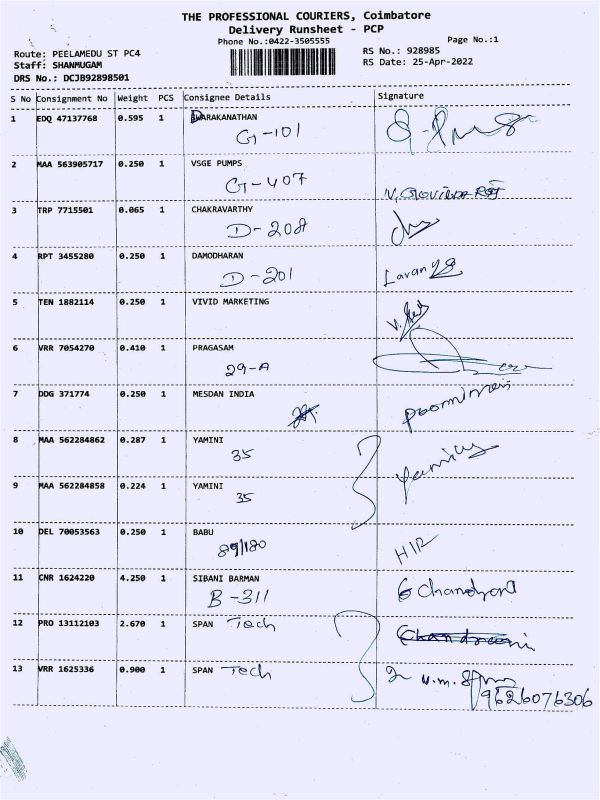 THE PROFESSIONAL COURIERS, Coimbatore
Delivery Runsheet - PCP
Phone No.:0422-3505555
Page No.:1
Route: PEELAMEDU ST PC4
Staff: SHANMUGAM
DRS No.: DCJB92898501
RS No.: 928985
RS Date: 25-Apr-2022
S No Consignment No Weight PCS Consignee Details Signature
1 EDQ 47137768 0.595 1 DWARAKANATHAN
G-101
2 MAA 563905717 0.250 1 VSGE PUMPS
G-407
3 TRP 7715501 0.065 1 CHAKRAVARTHY
D-208
4 RPT 3455280 0.250 1 DAMODHARAN
D-201
5 TEN 1882114 0.250 1 VIVID MARKETING
6 VRR 7054270 0.410 1 PRAGASAM
29-A
7 DDG 371774 0.250 1 MESDAN INDIA
8 MAA 562284862 0.287 1 YAMINI
35
9 MAA 562284858 0.224 1 YAMINI
35
10 DEL 70053563 0.250 1 BABU
89/180
11 CNR 1624220 4.250 1 SIBANI BARMAN
B-311
12 PRO 13112103 2.670 1 SPAN Tech
13 VRR 1625336 0.900 1 SPAN Tech
9626076306